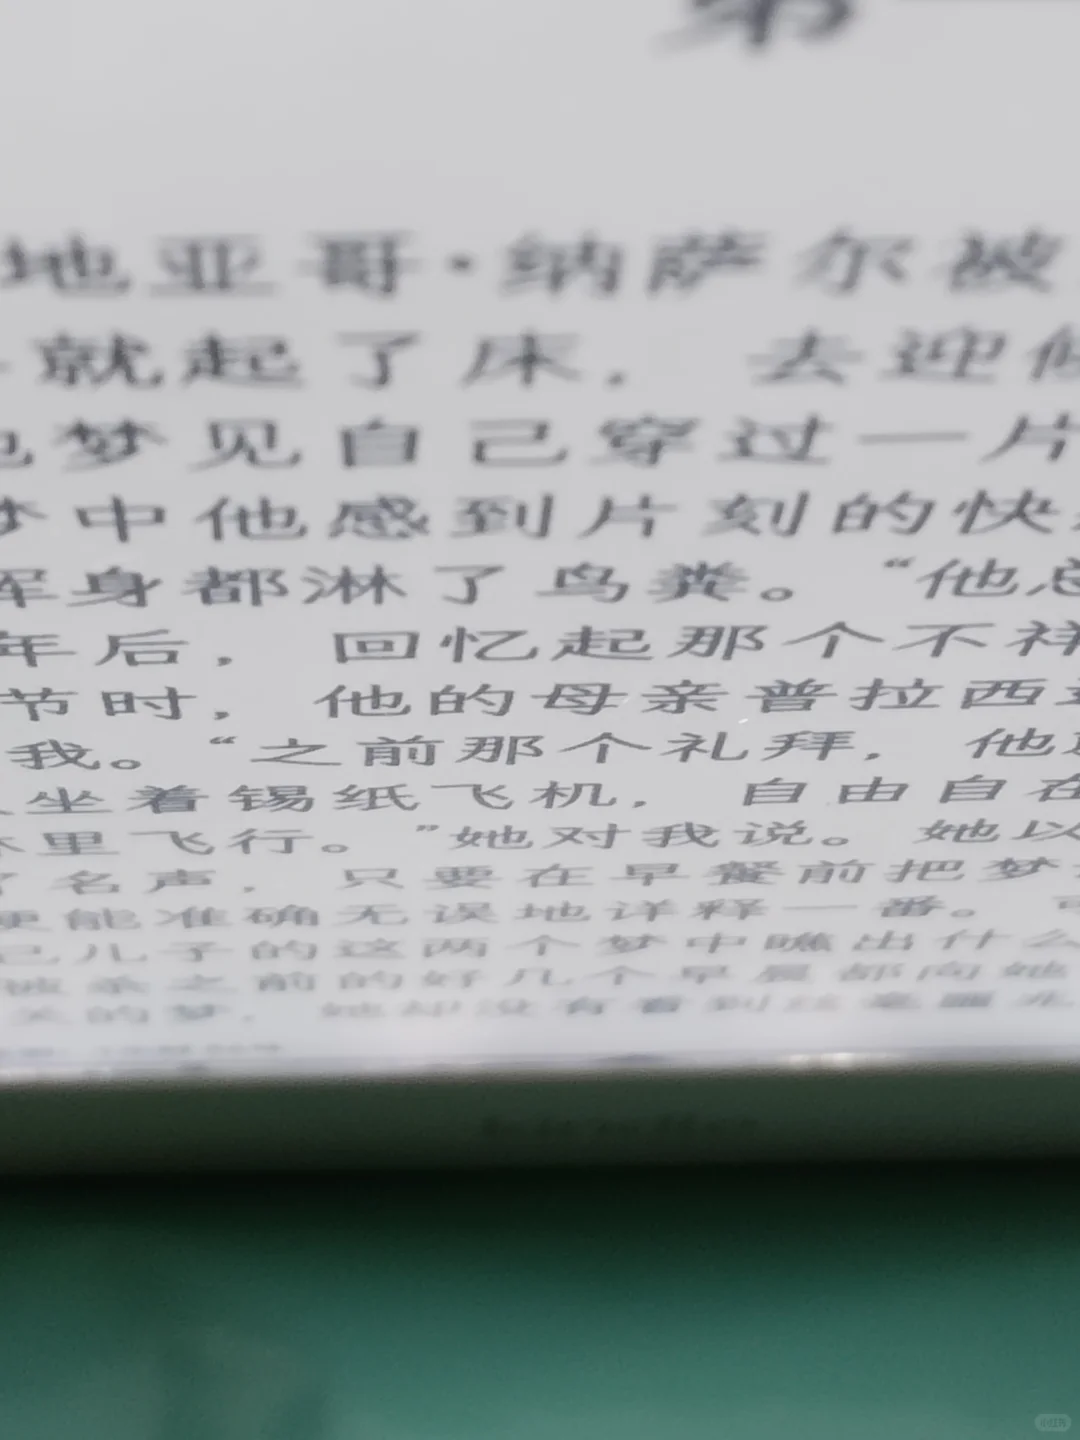 第一
地亚哥·纳萨尔被
就起了床，去迎候
他梦见自己穿过一片
梦中他感到片刻的快
浑身都淋了鸟粪。“他总
年后，回忆起那个不祥
节时，他的母亲普拉西
我。“之前那个礼拜，他
坐着锡纸飞机，自由自在
林里飞行。”她对我说。她以
了名声，只要在早餐前把梦
便能准确无误地详释一番。可
己儿子的这两个梦中瞧出什么
被杀之前的好几个早晨都向她
关的梦，她却没有看到丝毫
小红书